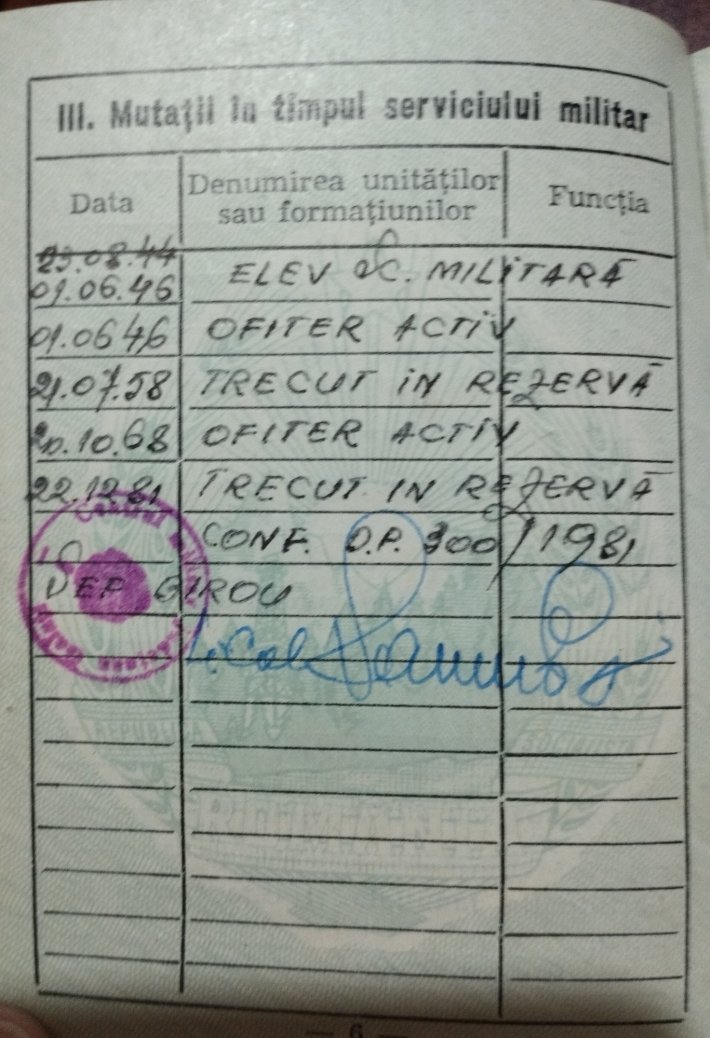 III. Mutații în timpul serviciului militar
Data
Denumirea unităților
sau formațiunilor
Funcția
23.08.44
01.06.46 ELEV SC. MILITARĂ
01.0646 OFITER ACTIV
21.07.58 TRECUT IN REZERVĂ
20.10.68 OFITER ACTIV
22.12.81 TRECUT IN REZERVĂ
CONF. O.P. 300/1981
ȘEF BIROU
Lt. Col.
Centrul militar
REPUBLICA SOCIALISTĂ
ROMÂNIA
— 6 —